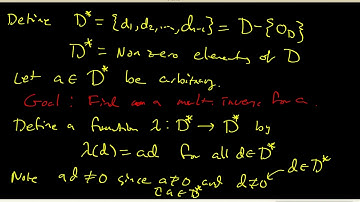 Define D* = {d₁, d₂, ..., dₙ₋₁} = D - {0_D}
D* = Non zero elements of D
Let a ∈ D* be arbitrary.
Goal: Find a mult. inverse for a.
Define a function λ: D* → D* by
λ(d) = ad for all d ∈ D*
Note ad ≠ 0 since a ≠ 0 and d ≠ 0 ← d ∈ D*
a ∈ D*